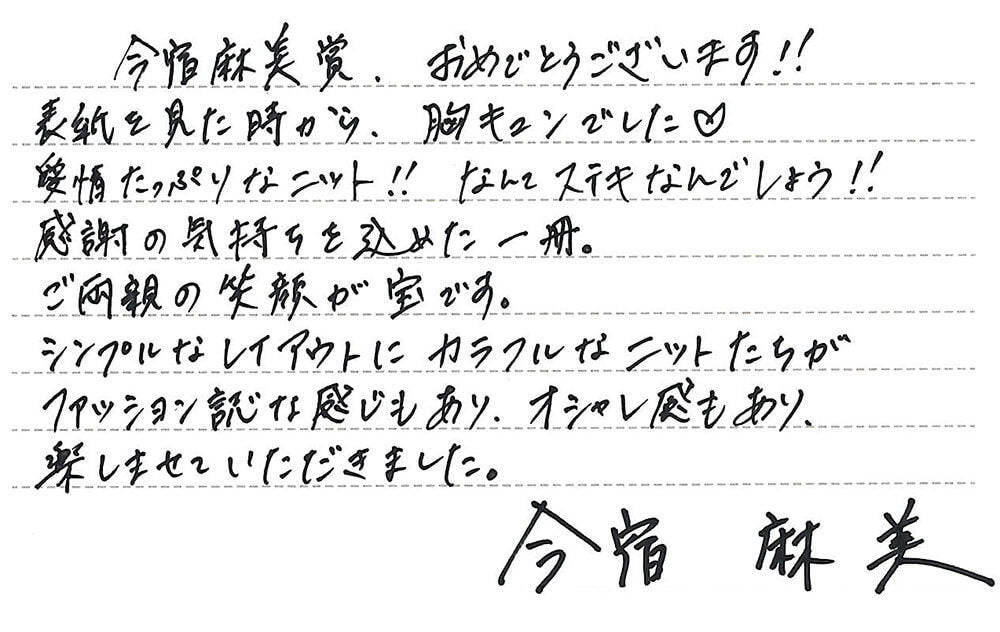 今宿麻美賞、おめでとうございます!!
表紙を見た時から、胸キュンでした♡
愛情たっぷりなニット!! なんてステキなんでしょう!!
感謝の気持ちを込めた一冊。
ご両親の笑顔が宝です。
シンプルなレイアウトにカラフルなニットたちが
ファッション誌な感じもあり、オシャレ感もあり、
楽しませていただきました。
今宿 麻美